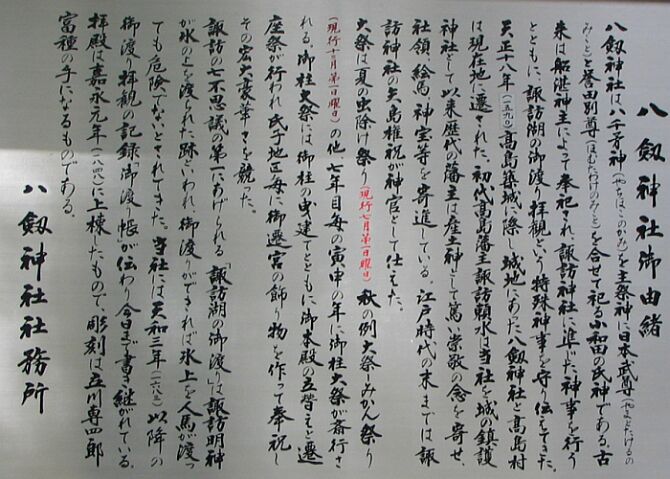 八劔神社御由緒
八劔神社は八千矛神(やちほこのかみ)を主祭神に日本武尊(やまとたけるの
みこと)と誉田別尊(ほむたわけのみこと)を合せて祀る小和田の氏神である。古
来は船湛神主によって奉祀され、諏訪神社に準じた神事を行う
とともに、諏訪湖の御渡り拝観という特殊神事を守り伝えてきた。
天正十八年(一五九〇)高島築城に際し、城地にあった八劔神社と高島村
は現在地に遷された。初代高島藩主諏訪頼水は当社を城の鎮護
神社として以来歴代の藩主は産土神として篤い崇敬の念を寄せ、
社領、絵馬、神宝等を寄進している。江戸時代の末までは諏
訪神社の矢島権祝が神官として仕えた。
大祭は夏の虫除け祭り(現行七月第一日曜日)秋の例大祭=みかん祭り
(現行十月第一日曜日)の他、七年目毎の寅申の年に御柱大祭が斎行さ
れる。御柱大祭には御柱の曳き建てとともに、御本殿の立替えと遷
座祭が行われ氏子地区毎に御遷宮の飾り物を作って奉祝し
その宏大豪華さを競った。
諏訪の七不思議の第一にあげられる「諏訪湖の御渡り」は諏訪明神
が氷の上を渡られた跡といわれ、御渡りができれば氷上を人馬が渡っ
ても危険でないとされてきた。当社には天和三年(一六八三)以降の
御渡り拝観の記録御渡り帳が伝わり今日まで書き継がれている。
拝殿は嘉永元年(一八四八)に上棟したもので、彫刻は立川専四郎
富種の手になるものである。
八劔神社社務所